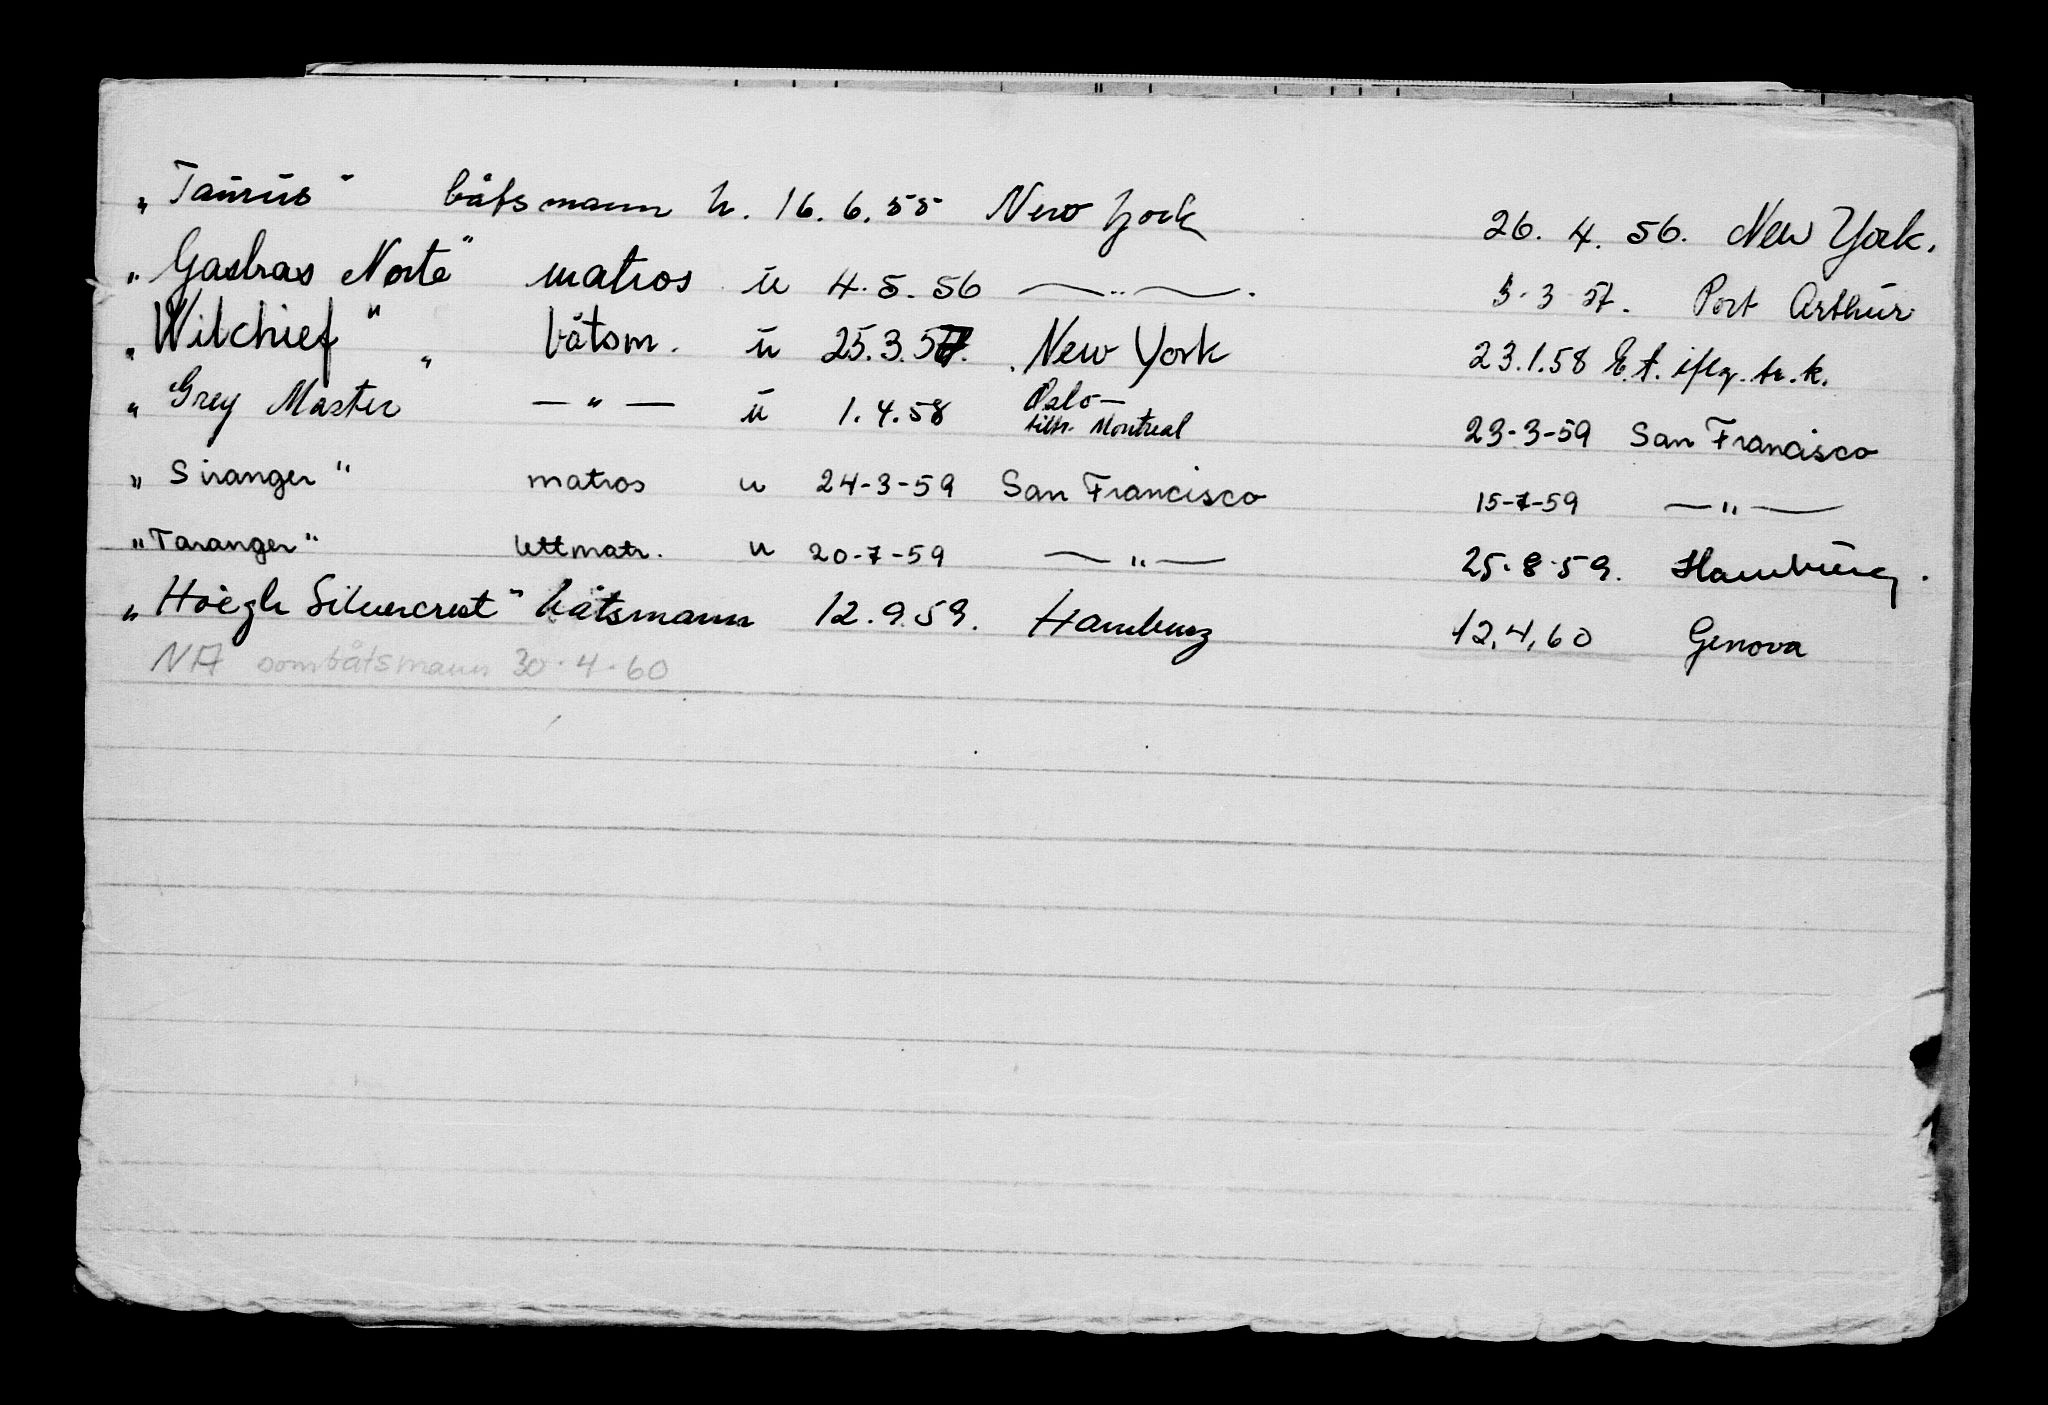 „Taurus" båtsmann u. 16.6.55 New York 26.4.56. New York.
„Gasbras Norte" matros u 4.5.56 —"—. 5.3.57. Port Arthur
„Wilchief" båtsm. u 25.3.57. New York 23.1.58 E.t. iflg. tr.k.
„Grey Master" —"— u 1.4.58 Oslo— 23-3-59 San Francisco
tiltr. Montreal
„Siranger" matros u 24-3-59 San Francisco 15-7-59 —"—
„Taranger" lettmatr. u 20-7-59 —"— 25.8.59. Hamburg.
„Höegh Silvercrest" båtsmann 12.9.59. Hamburg 12,4,60 Genova
NA som båtsmann 30.4.60